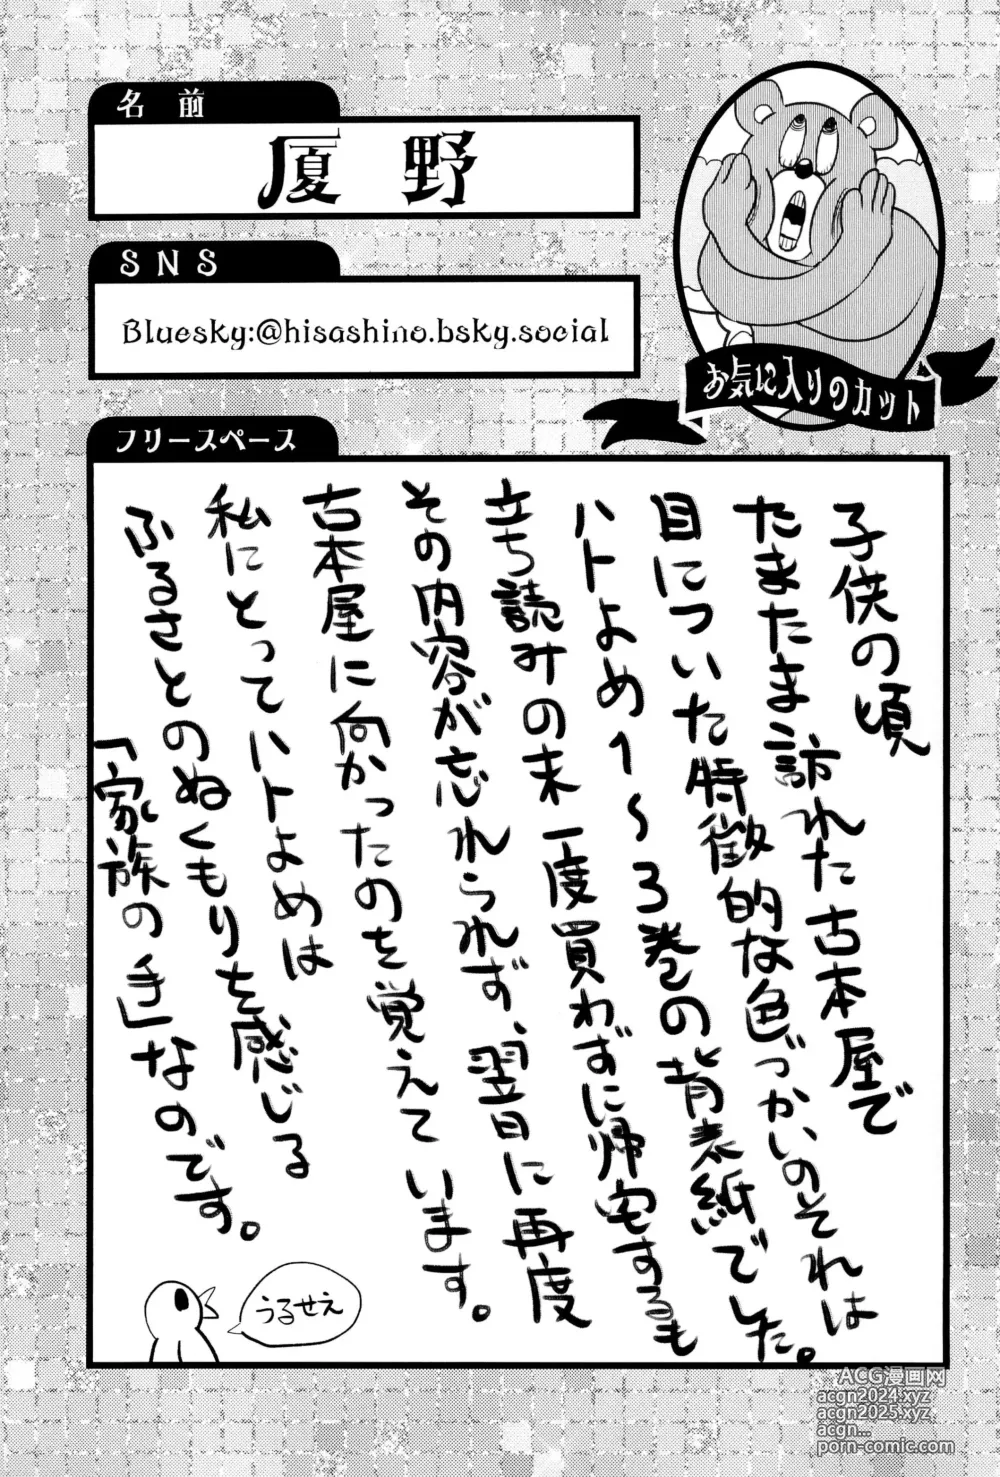 名前
厦野
SNS
Bluesky:@hisashino.bsky.social
お気に入りのカット
フリースペース
子供の頃
たまたま訪れた古本屋で
目についた特徴的な色づかいのそれは
ハトよめ1～3巻の背表紙でした。
立ち読みの末一度買わずに帰宅するも
その内容が忘れられず、翌日に再度
古本屋に向かったのを覚えています。
私にとってハトよめは
ふるさとのぬくもりを感じる
「家族の手」なのです。
うるせえ
ACG漫画网
acgn2024.xyz
acgn2025.xyz
acgn...
porn-comic.com